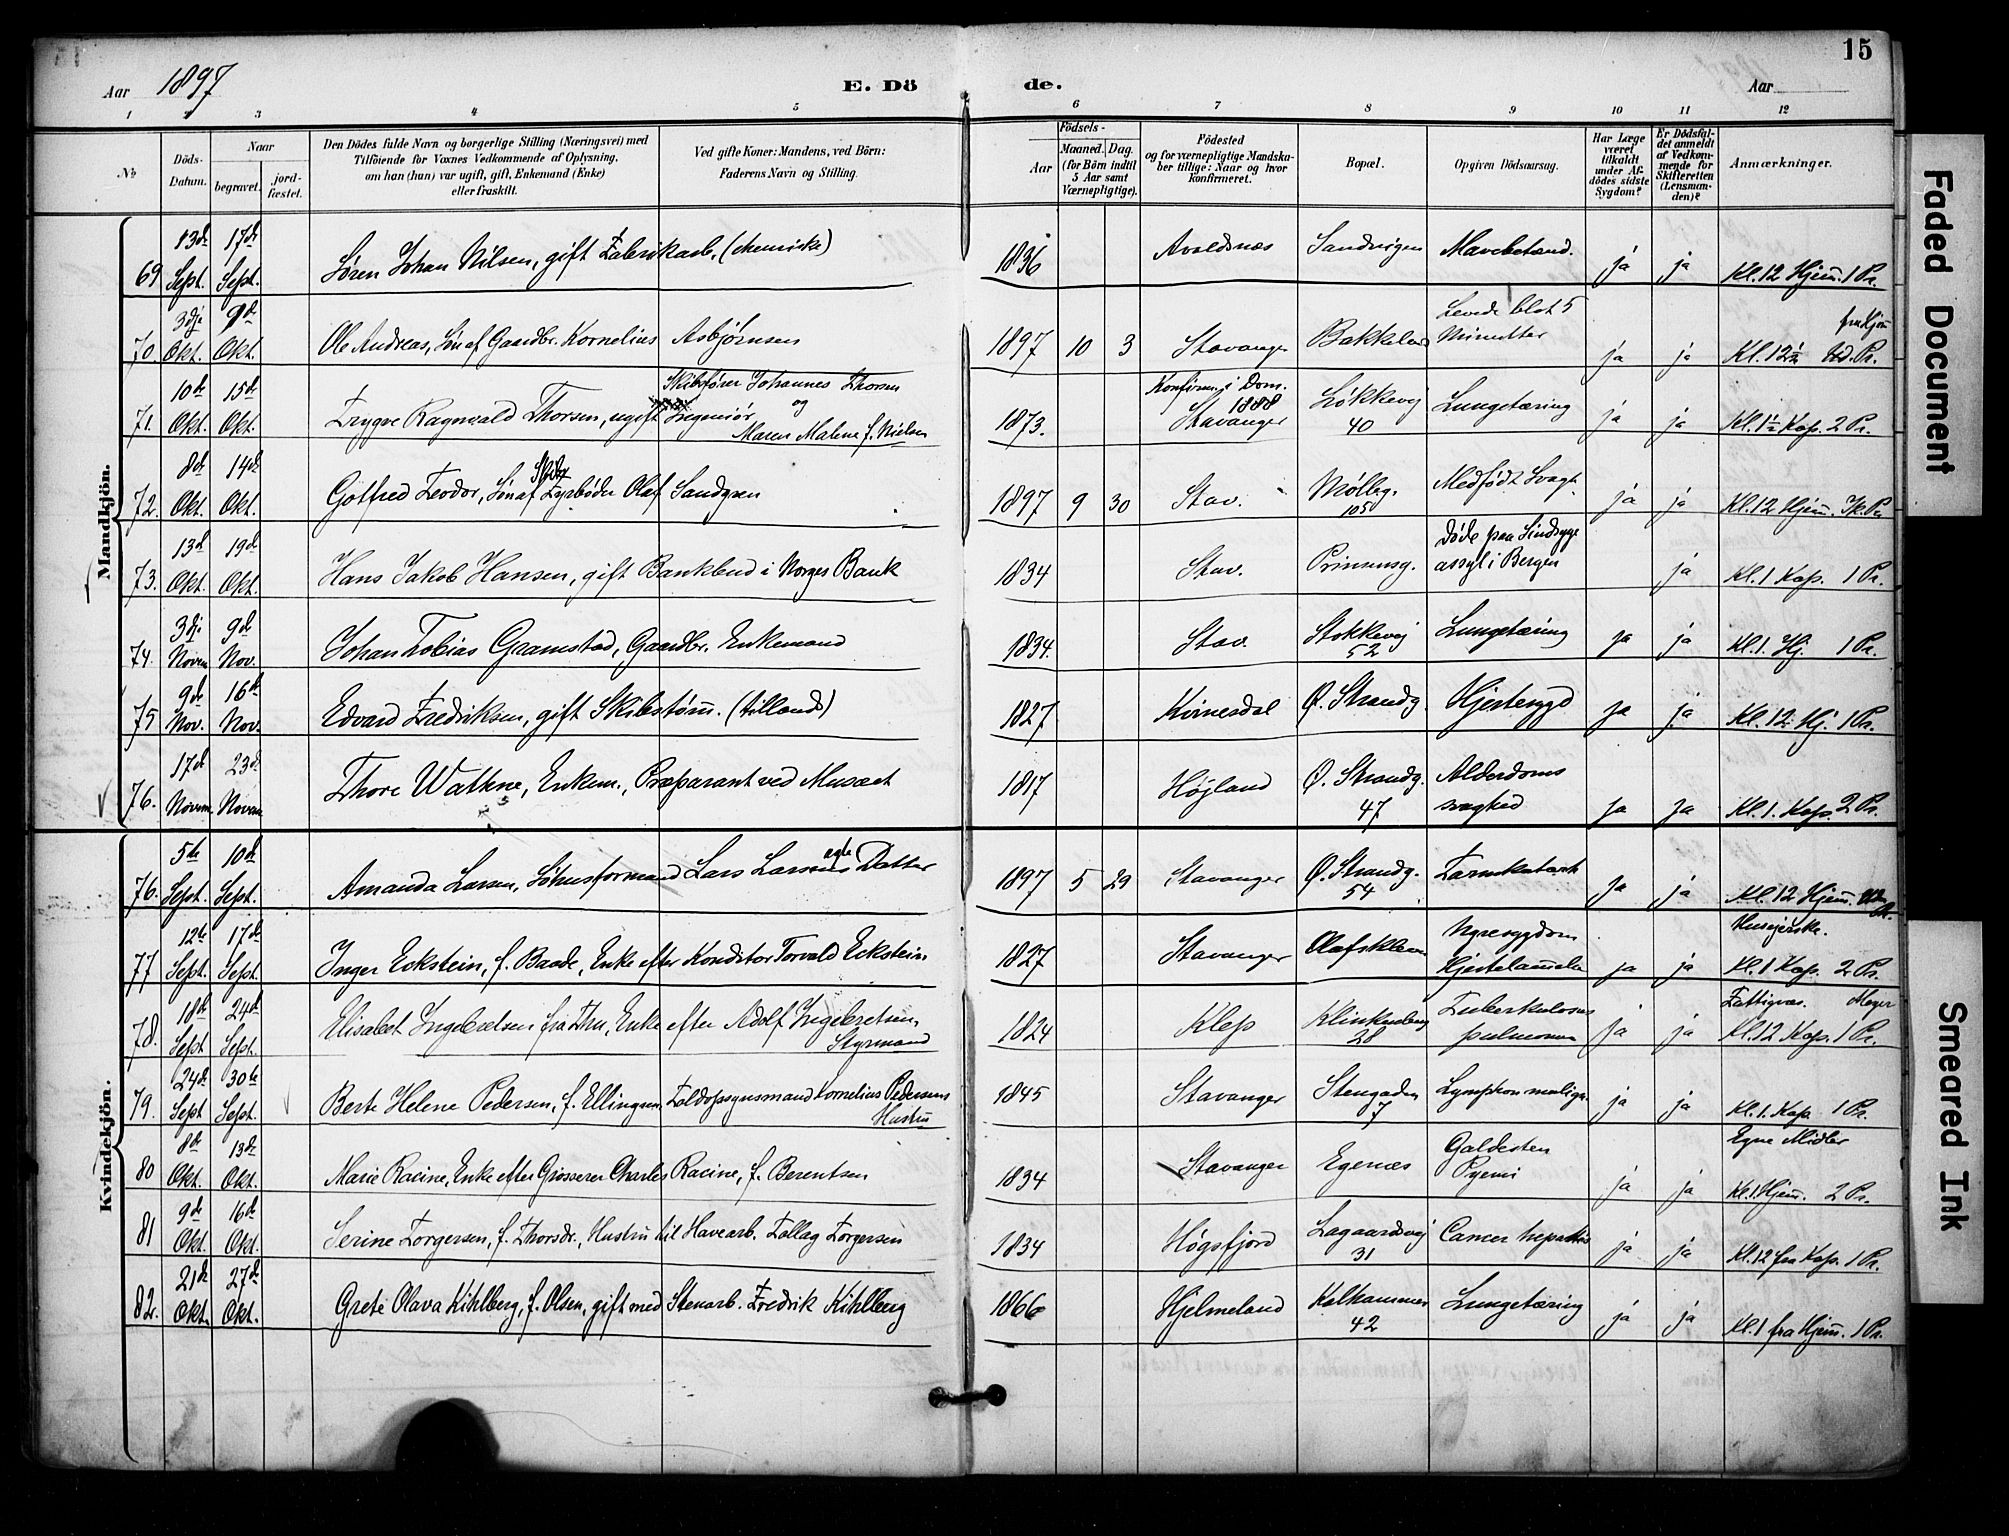 15
Aar 1897 E. Döde. Aar
1 2 3 4 5 6 7 8 9 10 11 12
No
Döds-Datum.
Naar begravet. jordfæstet.
Den Dödes fulde Navn og borgerlige Stilling (Næringsvei) med Tilföiende for Voxnes Vedkommende af Oplysning, om han (hun) var ugift, gift, Enkemand (Enke) eller fraskilt.
Ved gifte Koner: Mandens, ved Börn: Faderens Navn og Stilling.
Födsels-
Aar Maaned. Dag. (for Börn indtil 5 Aar samt Værnepligtige).
Födested og for værnepligtige Mandskaber tillige: Naar og hvor konfirmeret.
Bopæl.
Opgiven Dödsaarsag.
Har Læge været tilkaldt under Afdödes sidste Sygdom?
Er Dödsfaldet anmeldt af Vedkommende for Skifteretten (Lensmanden)?
Anmærkninger.
Mandkjön.
69 13de Sept. 17de Sept. Søren Johan Nilsen, gift Fabrikarb. (chemiske) 1836 Avaldsnæs Sandvigen Mavebetænd. ja ja Kl. 12 Hjem. 1 Pr.
70. 3dje Okt. 9de Okt. Ole Andreas, Søn af Gaardbr. Kornelius Asbjørnsen 1897 10 3 Stavanger Bakkeland Levede blot 5 Minutter ja ja Kl. 12½ fra Hjem Pr.
71. 10de Okt. 15de Okt. Trygve Ragnvald Thorsen, ugift Ingeniør Skibsfører Johannes Thorsen og Maren Malene f. Nielsen 1873. Konfirm. i Dom. 1888 Stavanger Løkkevej 40 Lungetæring ja ja Kl. 1½ Kap. 2 Pr.
72. 8de Okt. 14de Okt. Gotfred Teodor, Søn af Skibs Fyrbøder Olaf Sandgren 1897 9 30 Stav. Mølleg. 105 Medfødt Svagh. ja ja Kl. 12 Hjem. Ik. Pr
73. 13de Okt. 19de Okt. Hans Jakob Hansen, gift Bankbud i Norges Bank 1834 Stav. Prinsensg. Døde paa Sindsyge assyl i Bergen ja Kl. 1 Kap. 1 Pr.
74. 3dje Novem 9de Nov. Johan Tobias Gramstad, Gaardbr. Enkemand 1834. Stav. Stokkevej 52 Lungetæring ja ja Kl. 1 Hj. 1 Pr.
75 9de Nov. 16de Nov. Edvard Fredriksen, gift Skibstøm. (tillands) 1827 Kvinesdal Ø. Strandg. Hjertesygd ja ja Kl. 12 Hj. 1 Pr.
76. 17de Novem 23de Novem Thore Watne, Enkem., Præparant ved Musæet 1817 Højland Ø. Strandg. 47 Alderdoms svaghed ja ja Kl. 1. Kap. 2 Pr.
Kvindekjön.
76. 5te Sept. 10de Sept. Amanda Larsen, Formand Lars Larsens egte Datter 1897 5 29 Stavanger Ø. Strandg. 54 Tarmkatarh ja ja Kl. 12 Hjem. Uden Pr.
77 12te Sept. 17de Sept. Inger Eckstein, f. Baade, Enke efter Konditor Torvald Eckstein. 1827 Stavanger Olafskleven Nyresygdom Hjertelammelse ja ja Husejerske. Kl. 1 Kap. 2 Pr.
78. 18de Sept 24de Sept. Elisabet Ingebretsen fra Thu, Enke efter Adolf Ingebretsen, Styrmand 1824 Klep Klinkenberg 28 Tuberkulosus pulmonum ja ja Fattigvæs. Meyer Kl. 12 Kap. 1 Pr.
79. 24de Sept 30te Sept. Berte Helene Pedersen, f. Ellingsen Toldopsynsmand Cornelius Pedersens Hustru 1845 Stavanger Stengaden 7 Lymfkom malign. ja ja Kl. 1. Kap. 1 Pr.
80 8de Okt. 13de Okt. Marie Racine, Enke efter Grosserer Charles Racine, f. Berentsen 1834 Stavanger Egenæs Galdesten Pyemi ja ja Egne Midler Kl. 1 Hjem. 2 Pr.
81 9de Okt. 16de Okt. Serine Torgersen, f. Thorsdr., Hustru til Havearb. Tollag Torgersen 1834 Høgsfjord Lagaardsvej 31 Cancer hepatis ja ja Kl. 12 fra Kap. 1 Pr.
82. 21de Okt. 27de Okt. Grete Olava Kihlberg, f. Olsen, gift med Stenarb. Fredrik Kihlberg 1866 Hjelmeland Kalhammer 42 Lungetæring ja ja Kl. 1 fra Hjem. 1 Pr.
Faded Document
Smeared Ink